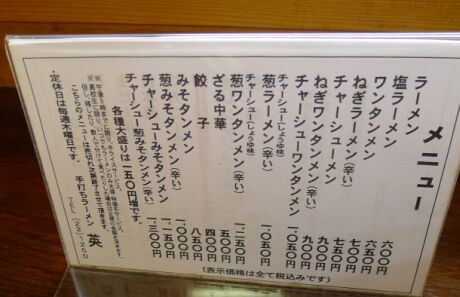 メニュー
ラーメン 六〇〇円
塩ラーメン 六五〇円
ワンタンメン 七五〇円
ねぎラーメン(辛い) 七五〇円
チャーシューメン 九〇〇円
ねぎワンタンメン(辛い) 九〇〇円
チャーシューワンタンメン 一、〇五〇円
チャーシュー(しょうゆ味)
葱ラーメン(辛い) 一、〇五〇円
チャーシュー(しょうゆ味)
葱ワンタンメン(辛い) 一、二五〇円
ざる中華
餃子 四〇〇円
みそタンメン 八五〇円
葱みそタンメン(辛い) 一、〇〇〇円
チャーシューみそタンメン 一、一五〇円
チャーシュー葱みそタンメン(辛い) 一、三〇〇円
各種大盛りは一五〇円増です。
こちらのメニューは売切れ次第終了させて頂きます。
・定休日は毎週木曜日です。
手打ちラーメン 英
TEL (22)1250
(表示価格は全て税込みです)